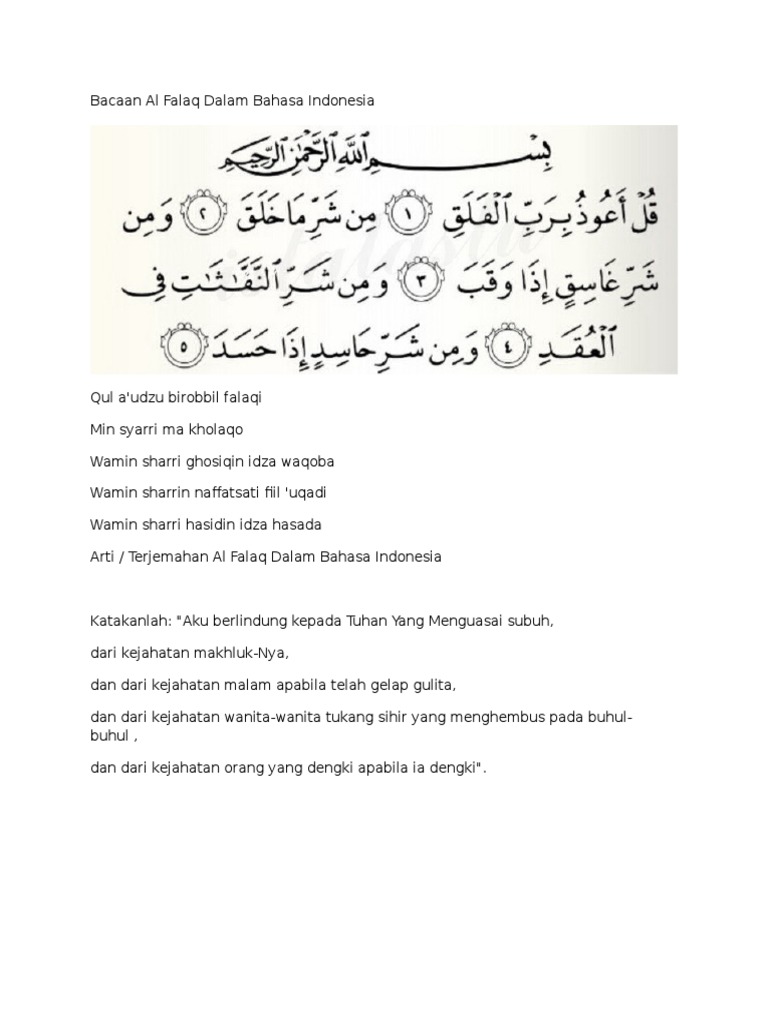 Bacaan Al Falaq Dalam Bahasa Indonesia
بِسْمِ اللَّهِ الرَّحْمَٰنِ الرَّحِيمِ
قُلْ أَعُوذُ بِرَبِّ ٱلْفَلَقِ ١ مِن شَرِّ مَا خَلَقَ ٢ وَمِن
شَرِّ غَاسِقٍ إِذَا وَقَبَ ٣ وَمِن شَرِّ ٱلنَّفَّٰثَٰتِ فِى
ٱلْعُقَدِ ٤ وَمِن شَرِّ حَاسِدٍ إِذَا حَسَدَ ٥
Qul a'udzu birobbil falaqi
Min syarri ma kholaqo
Wamin sharri ghosiqin idza waqoba
Wamin sharrin naffatsati fiil 'uqadi
Wamin sharri hasidin idza hasada
Arti / Terjemahan Al Falaq Dalam Bahasa Indonesia
Katakanlah: "Aku berlindung kepada Tuhan Yang Menguasai subuh,
dari kejahatan makhluk-Nya,
dan dari kejahatan malam apabila telah gelap gulita,
dan dari kejahatan wanita-wanita tukang sihir yang menghembus pada buhul-
buhul ,
dan dari kejahatan orang yang dengki apabila ia dengki".